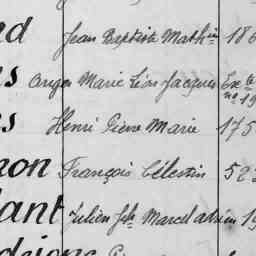 nd Jean Baptiste Mathin 186
s Anges Marie Léon Jacques Exe
s Henri Pierre Marie 175
non François Célestin 523
lant Julien Jph Marcel 19